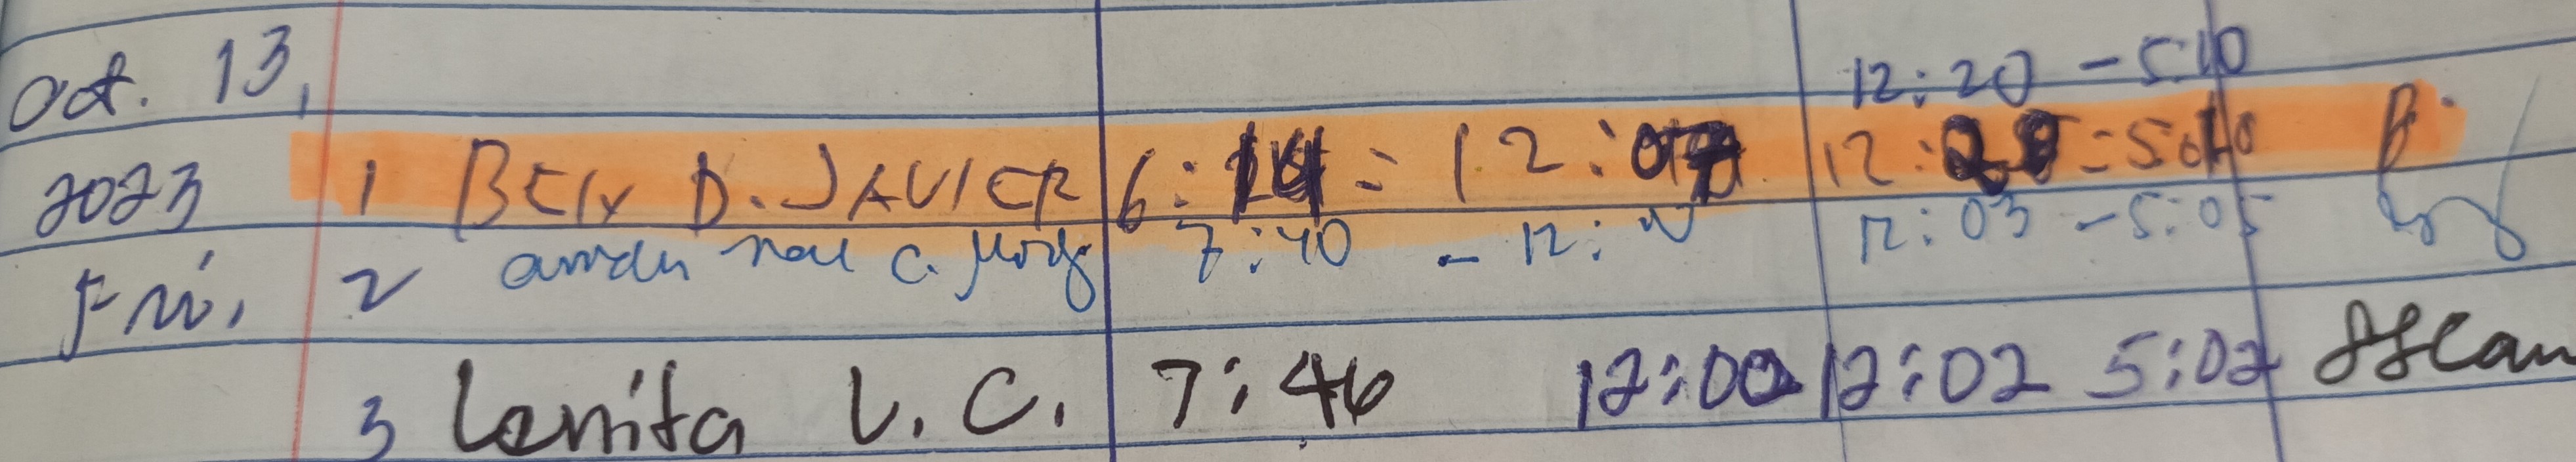 Oct. 13,
12:20 - 5:10
2023 1 BEIX D. JAVIER 6:14 = 12:07 12: = 5:10
Fri. 2 C. 7:40 - 12: 12:03 - 5:05
3 Lenita L. C. 7:46 12:00 12:02 5:02